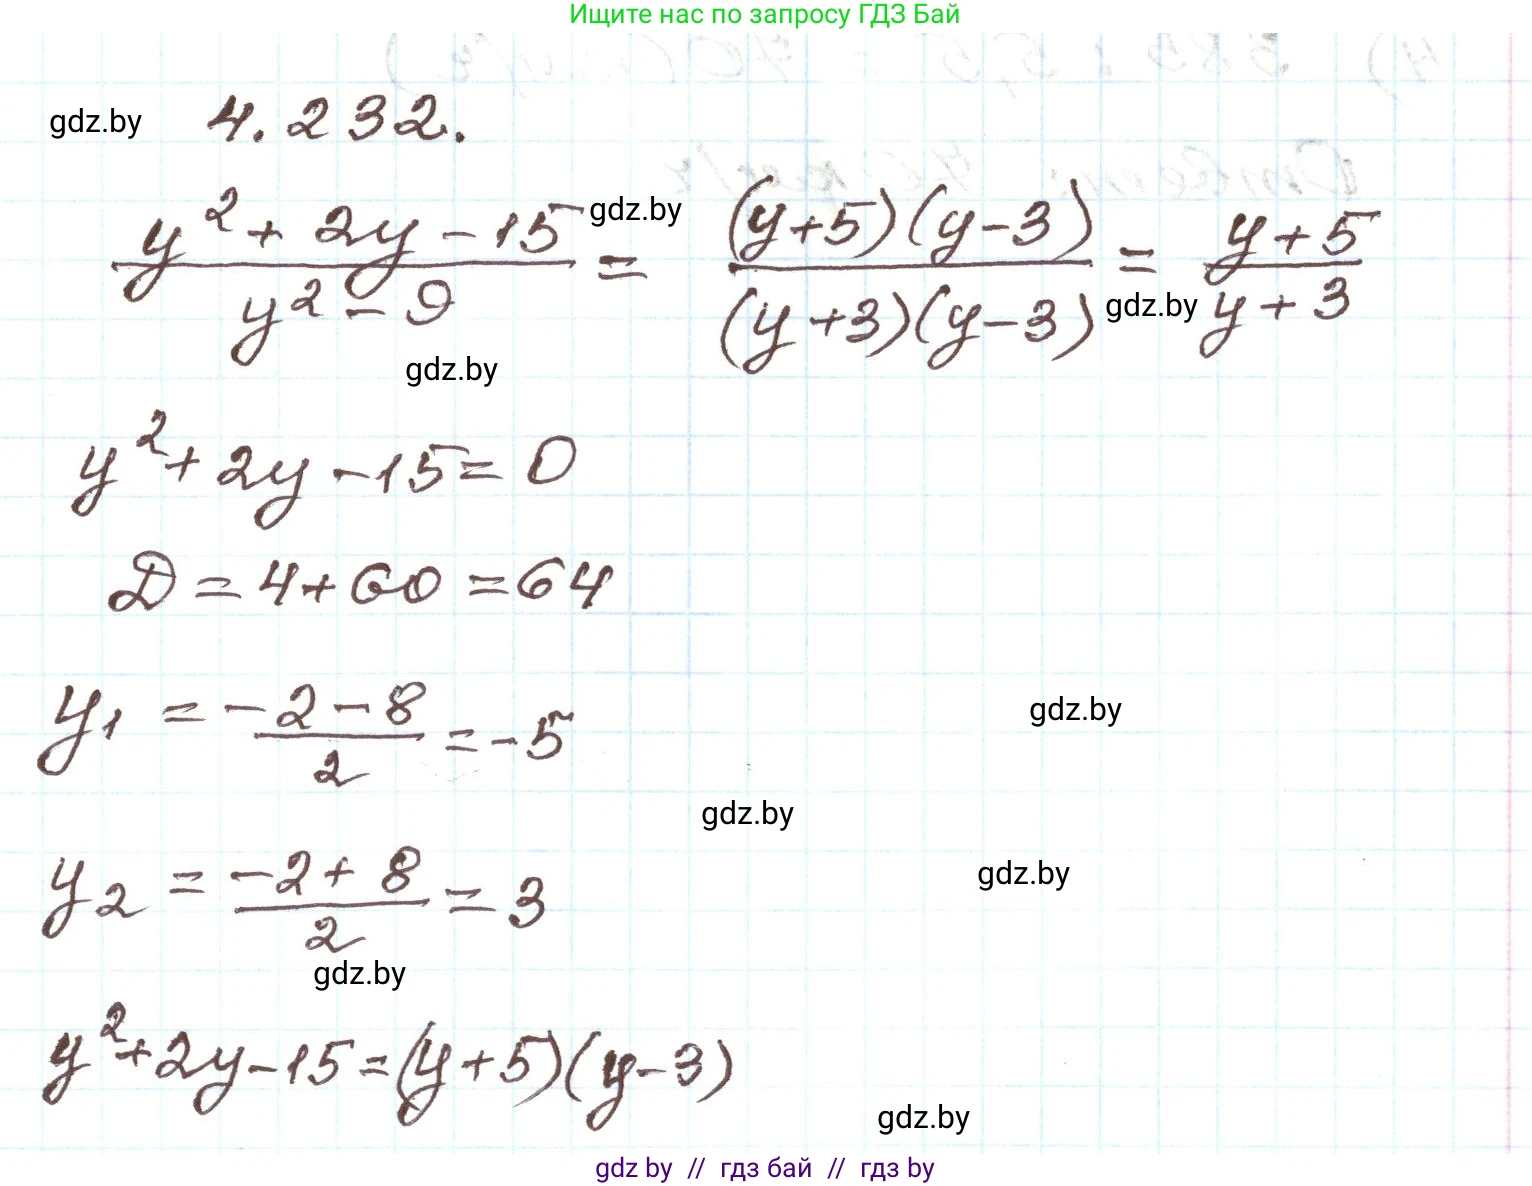 Ищите нас по запросу ГДЗ Бай
gdz.by 4.232.
(y² + 2y - 15)/(y² - 9) = ((y+5)(y-3))/((y+3)(y-3)) = (y+5)/(y+3)
gdz.by
gdz.by
gdz.by
y² + 2y - 15 = 0
D = 4 + 60 = 64
y₁ = (-2 - 8)/2 = -5
gdz.by
gdz.by
y₂ = (-2 + 8)/2 = 3
gdz.by
gdz.by
y² + 2y - 15 = (y+5)(y-3)
gdz.by
gdz by // гдз бай // гдз by